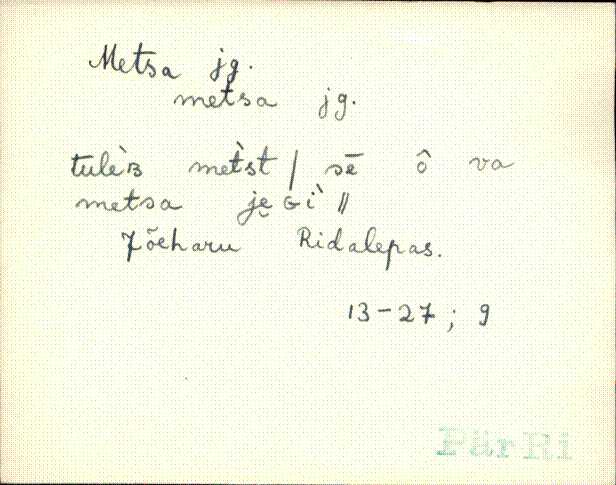 Metsa jg.
metsa jg.
tulèʙ metst | sē ô va
metsa ję ɢì ||
Jõeharu Ridalepas.
13-27; 9
PärRi